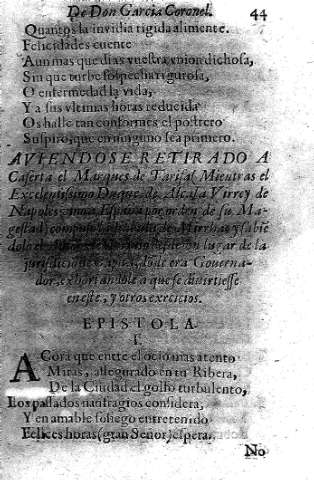 De Don Garcia Coronel. 44
Quantos la invidia rigida alimente.
Felicidades cuente
Aun mas que dias vuestra vnion dichosa,
Sin que turbe sospecha rigurosa,
O enfermedad la vida,
Y a sus vltimas horas reducida
Os halle tan conformes el postrero
Suspiro, que en ninguno sea primero.
AVIENDOSE RETIRADO A
Caserta el Marques de Tarifa Mientras el
Excelentissimo Duque de Alcala Virrey de
Napoles España por orden de su Ma-
gestad; la de Mirrha, y
dole el lugar de la
jurisdicion era Governa-
dor, exhortandole a que se divirtiesse
en este, y otros exrcicios.
EPISTOLA
I.
AGora que entre el ocio mas atento
Miras, assegurado en tu Ribera,
De la Ciudad el golfo turbulento,
Los passados naufragios considera;
Y en amable sosiego entretenido
Felices horas (gran Señor) espera.
No